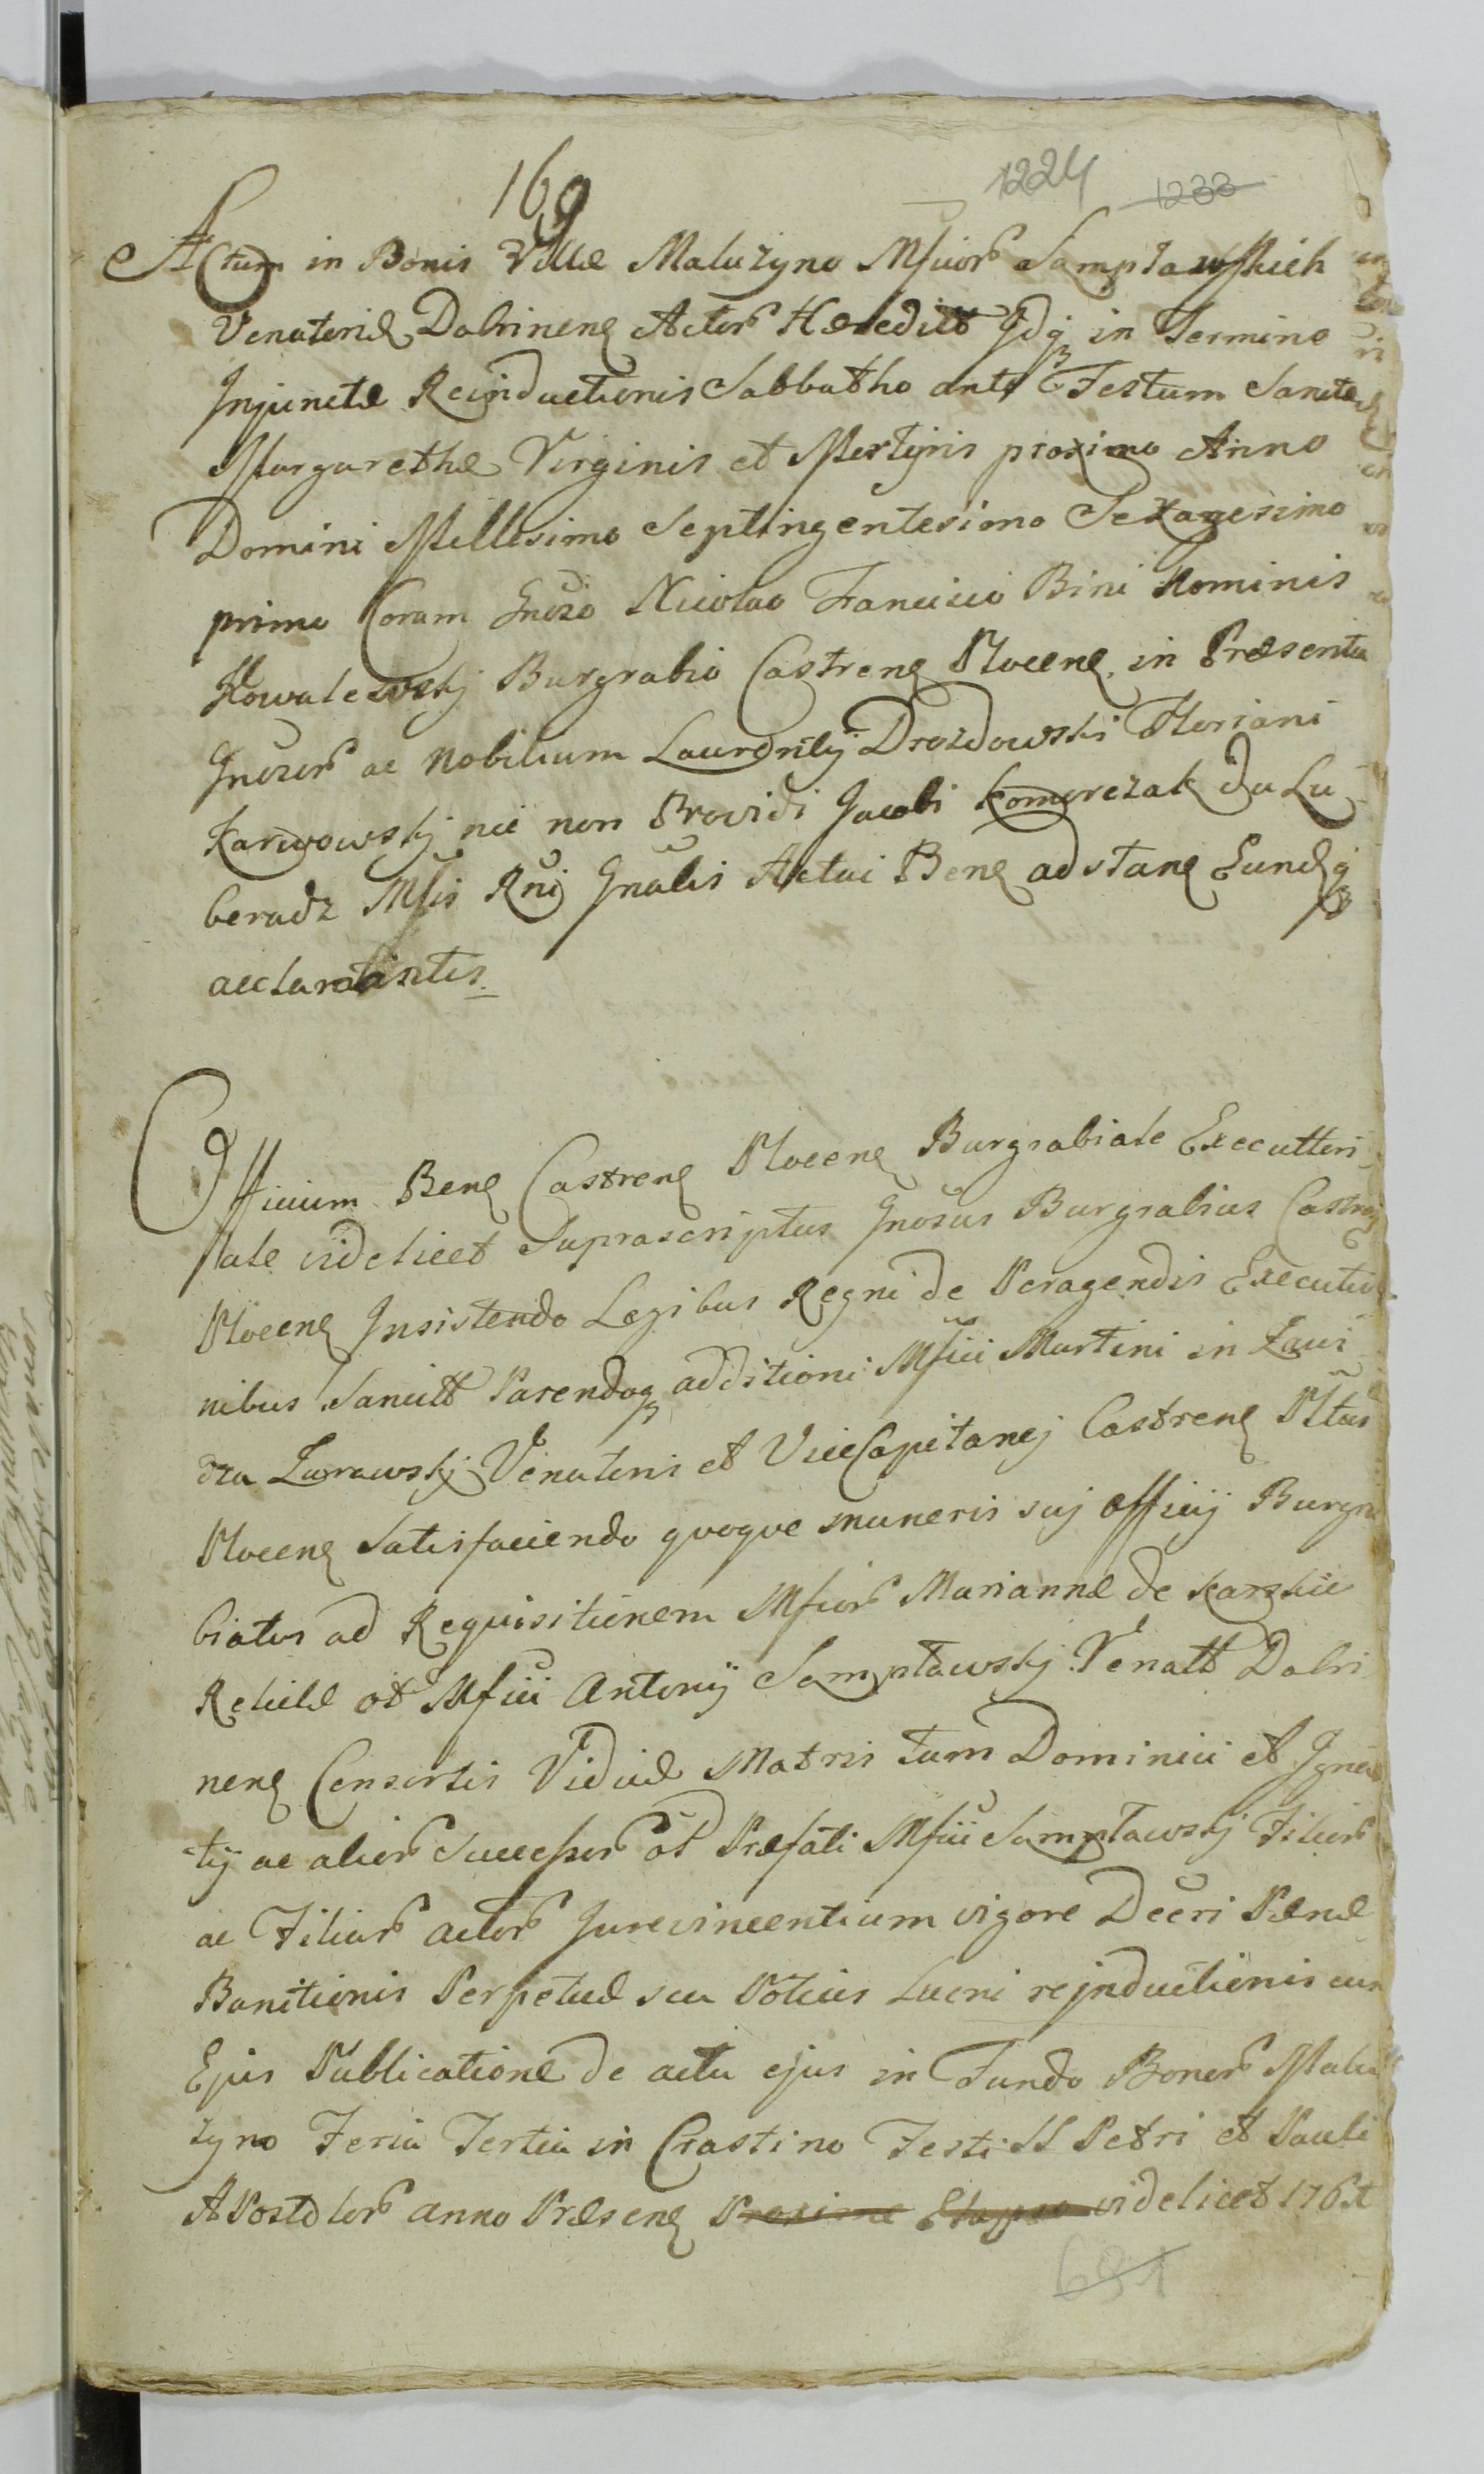 169
1224 1233
Actum in Bonis Villæ Maluzyno Mficor Sąmpławskich
Venatoriæ Dobrinens Actor Hæreditt Idq in Termino
Injunctæ Reinductionis Sabbatho ante Festum Sanctæ
Margarethæ Virginis et Martyris proximo Anno
Domini Millesimo Septingentesimo Sexagesimo
primo Coram Gnoso Nicolao Fancisco Bini Nominis
Kowalewskj Burgrabio Castrens Plocens in Præsentia
Gnosor ac Nobilium Laurentij Drozdowski Floriani
Karwowskj nec non Providi Jacobi Komorczak da Lu
beradz Mlis Rni Gnalis Actui Bene adstans Eundq
acclamantis.
Officium Bene Castrens Plocens Burgrabiale Executtori
ale videlicet Suprascriptus Gnosus Burgrabius Castrens
Plocens Insistendo Legibus Regni de Peragendis Executio
nibus Sancitt Parendoq additioni Mfici Martini in
Zurawskj Venatoris et ViceCapitanej Castrens
Plocens Satisfaciendo qvoqve muneris suj officij Burgra
biatus ad Reqvisitionem Mficor Mariannæ de Karskie
Relictæ ol Mfici Antonij Sąmpławskj Venatt Dobri
nens Consortis Viduæ Matris tum Dominici et Igna
tij ac alior Successor ol Præfati Mfici Sąmpławskj Filior
ac Filiar actor Jurevincentium vigore Decri Pænæ
Banitionis Perpetuæ seu Potius Lucri rejnductionis cum
Ejus Publicatione de actu ejus in Fundo Bonor Malu
zyno Feria Tertia in Crastino Festi SS Petri et Pauli
APostolor anno Præsens Proxime Elapso videlicet 1761
691